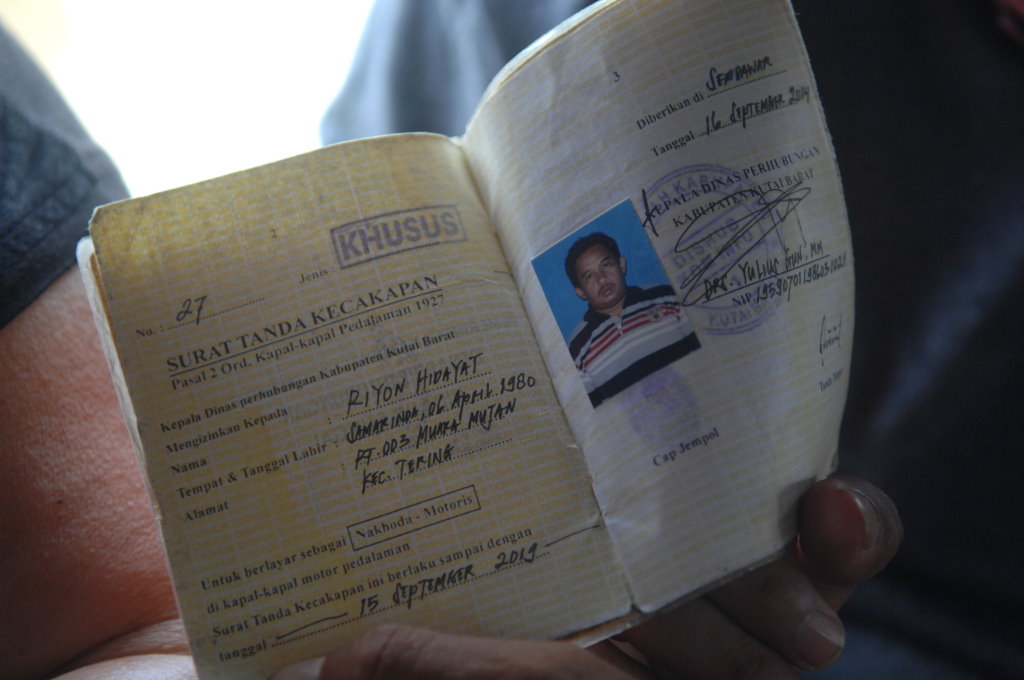 2
Jenis : KHUSUS
No. : 27
SURAT TANDA KECAKAPAN
Pasal 2 Ord. Kapal-kapal Pedalaman 1927
Kepala Dinas perhubungan Kabupaten Kutai Barat
Mengizinkan Kepada
Nama : RIYON HIDAYAT
Tempat & Tanggal Lahir : SAMARINDA, 06 April 1980
Alamat : RT. 003 MUARA MUJAN
KEC. TERING
Untuk berlayar sebagai Nakhoda - Motoris
di kapal-kapal motor pedalaman
Surat Tanda Kecakapan ini berlaku sampai dengan
tanggal 15 SEPTEMBER 2019
3
Diberikan di SENDAWAR
Tanggal 16 SEPTEMBER 2014
KEPALA DINAS PERHUBUNGAN
KABUPATEN KUTAI BARAT
Drs. YULIUS GUN, MM
NIP.
Cap Jempol